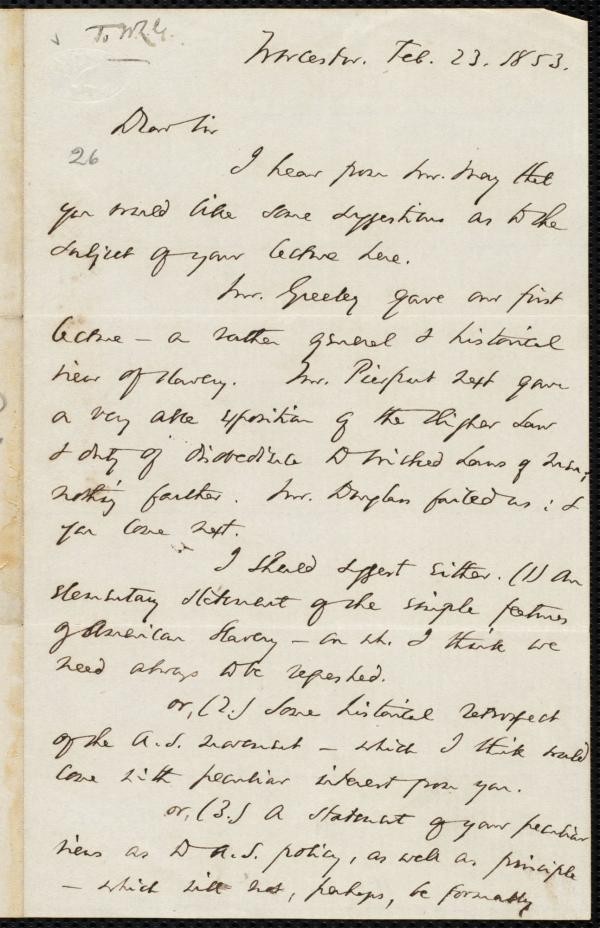 To W.L.G.
Worcester. Feb. 23. 1853.
Dear Sir
26
I hear from Mr. May that
you would like some suggestions as to the
subject of your lecture here.
Mr. Greeley gave our first
lecture – a rather general & historical
view of slavery. Mr. Pierpont next gave
a very able exposition of the Higher Law
& duty of disobedience to wicked laws of men;
nothing farther. Mr. Douglass failed us; &
you come next.
I should suggest either. (1) An
elementary statement of the simple features
of American Slavery – on wh. I think we
need always to be refreshed.
or, (2.) Some historical retrospect
of the A.S. movement – which I think would
come with peculiar interest from you.
or, (3.) A statement of your peculiar
views as to A.S. policy, as well as principle
– which will not, perhaps, be formally